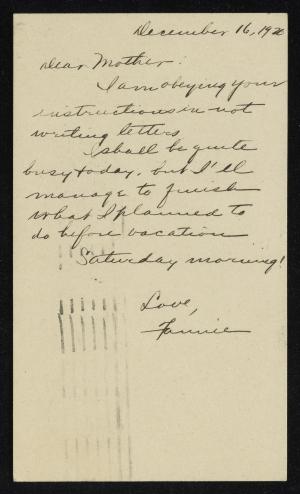 December 16, 1920
Dear Mother:
I am obeying your
instructions in not
writing letters
I shall be quite
busy today, but I'll
manage to finish
what I planned to
do before vacation
Saturday morning!
Love,
Fannie